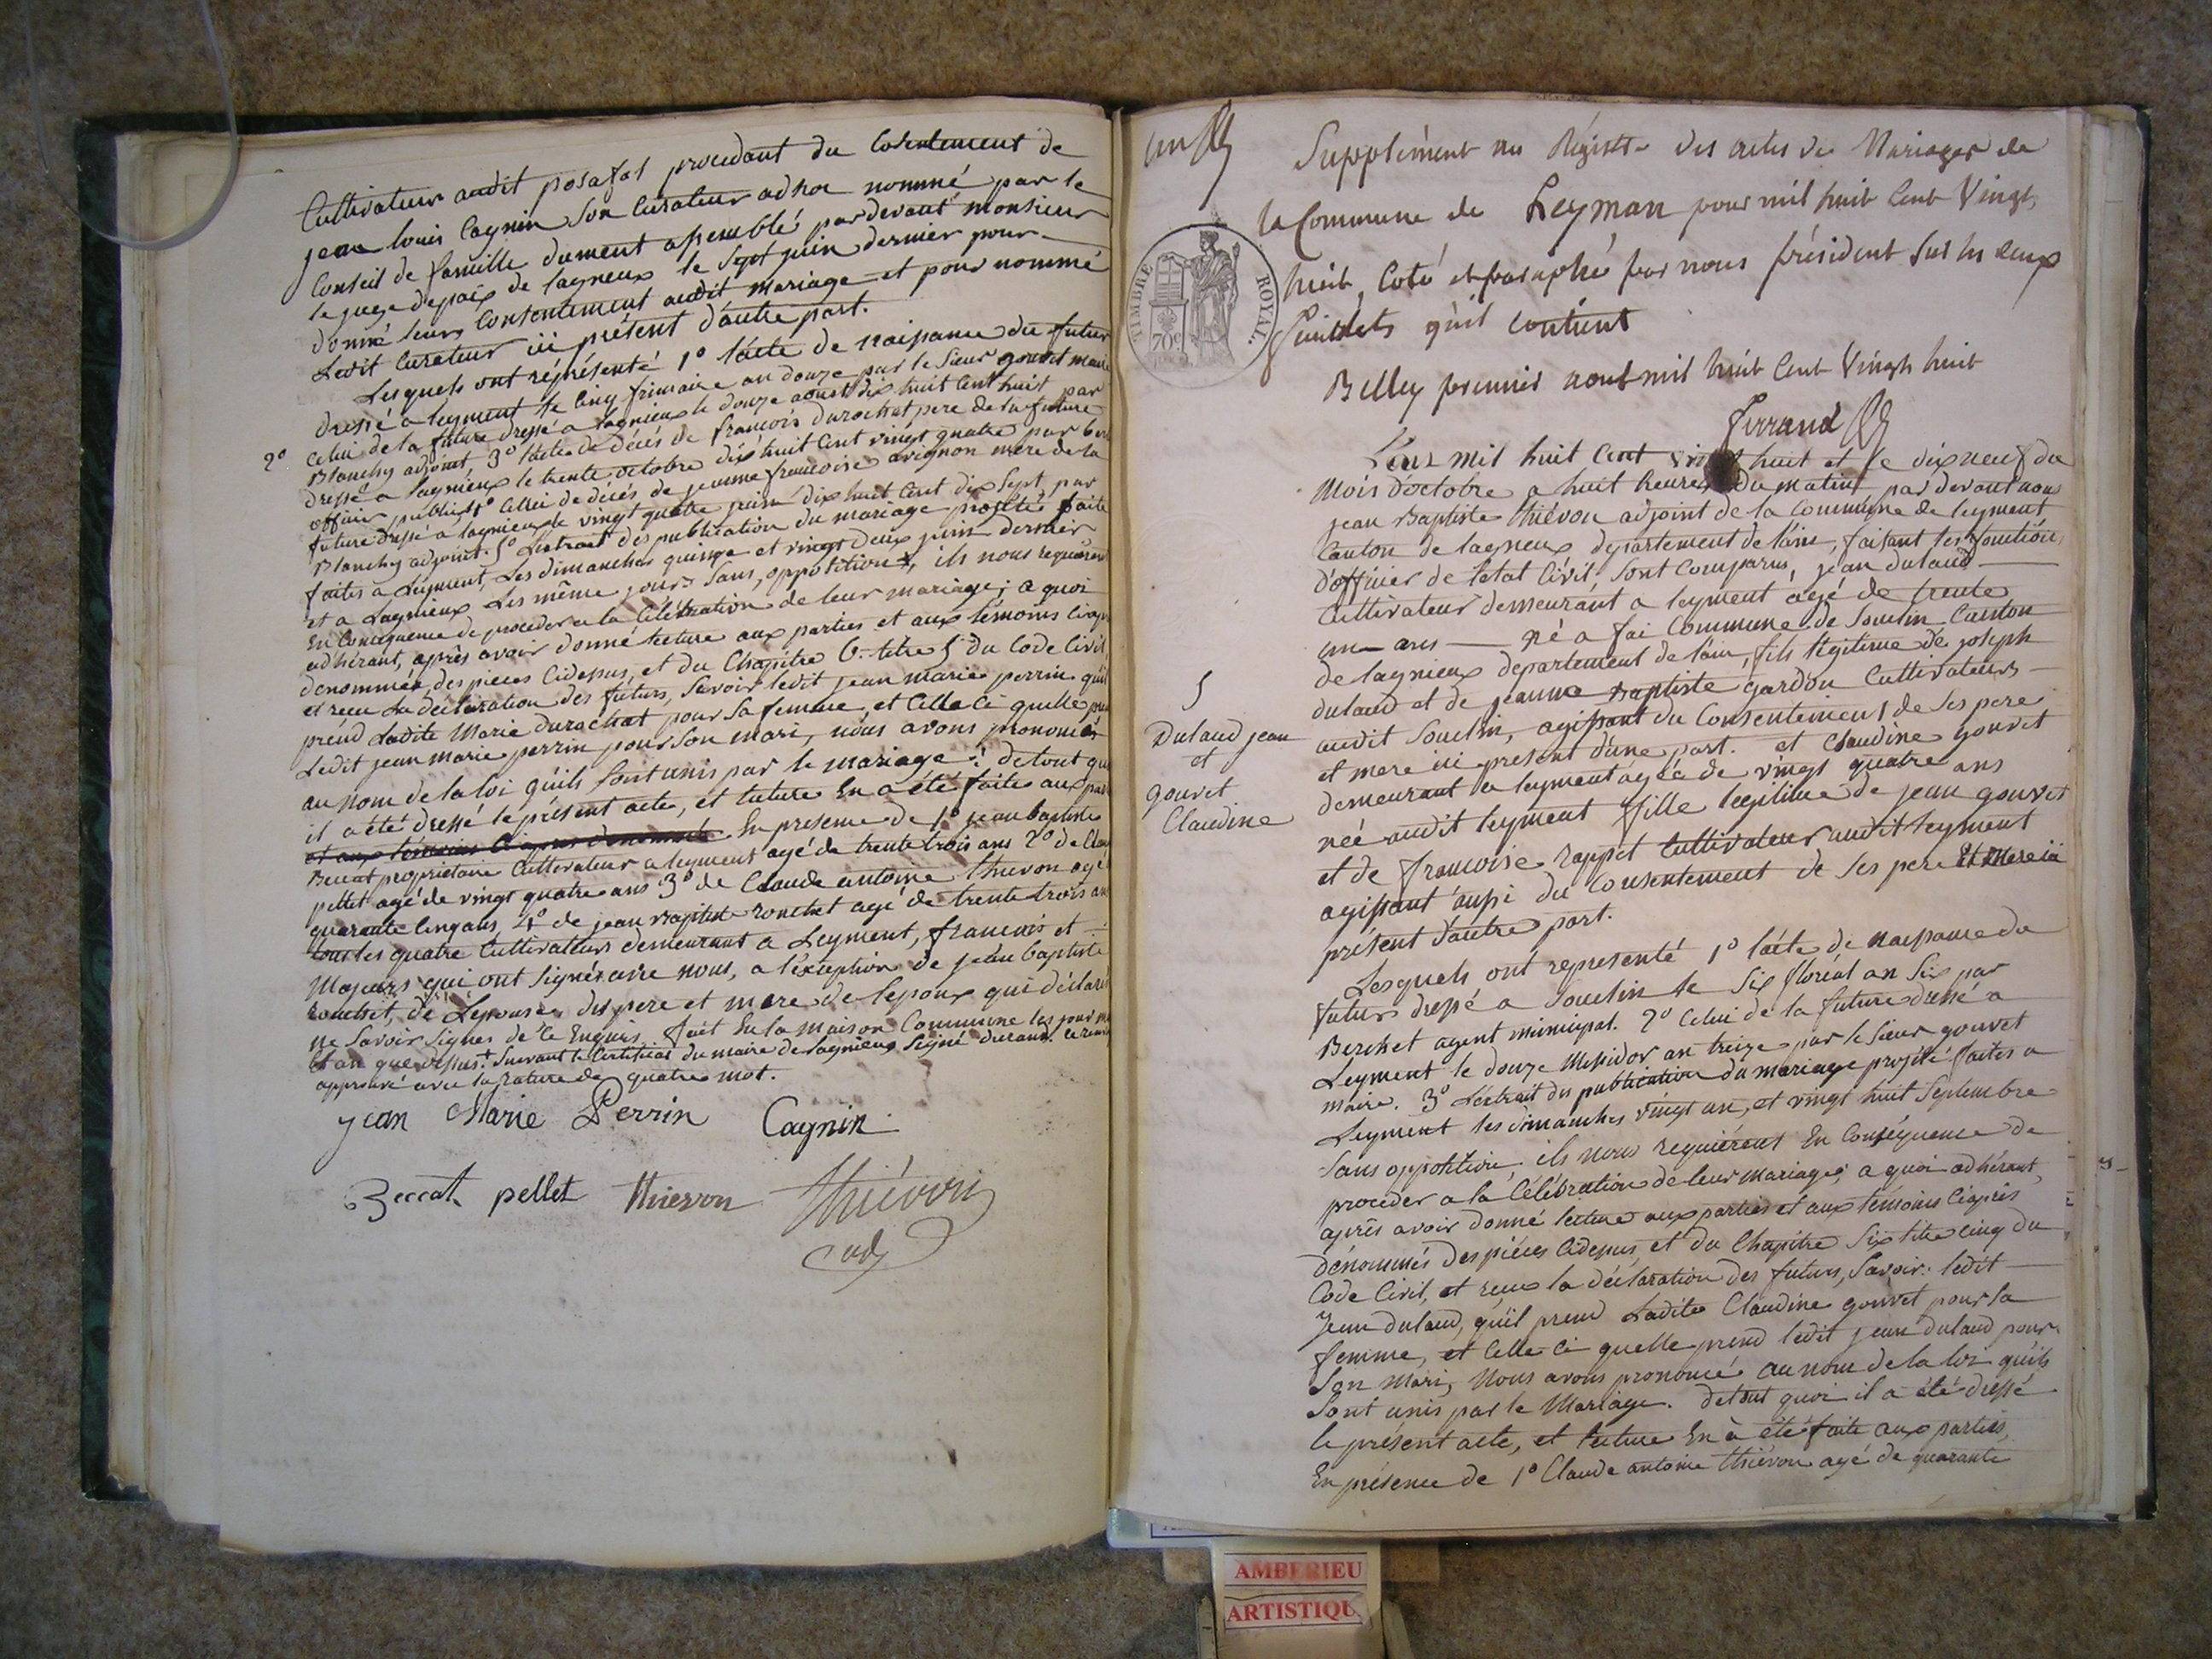 Cultivateur audit posafol procedant du Consentement de
jean louis Cagnin Son Curateur adhoc nommé par le
Conseil de famille dument assemblé pardevant monsieur
le juge depaix de lagneux le Sept juin dernier pour
donné leurs Consentement audit mariage et pour nommé
Ledit Curateur ici présent d'autre part.
Lesquels ont réprésenté 1º l'acte de naissance du futur
dressé a leyment le Cinq frimaire an douze par le Sieur gouvet maire
2º
Celui de la future dressé a lagnieux le douze aoust dix huit Cent huit par
Blanchy adjoint, 3º l'acte de décés de francois durochat pere de la future
dressé a lagnieux le trente octobre dix huit Cent vingt quatre par
officier public 4º Celui de décés de jeanne francoise avignon mere de la
future dressé a lagnieux le vingt quatre juin dix huit Cent dix Sept par
Blanchy adjoint. 5º Lextrait des publication du mariage projetté faite
faites a Leyment, Les dimanches quinze et vingt deux juin dernier
et a Lagnieux Les même jours Sans opposition, ils nous requièrent
En Conséquence de proceder a la Célébration de leur mariage; a quoi
adhérant, après avoir donné lecture aux parties et aux témoins Ciaprès
denommés, des pieces Cidessus, et du Chapitre 6. titre 5 du Code Civil,
et recu La déclaration des futurs, Savoir ledit jean marie perrin qu'il
prend Ladite Marie Durochat pour Sa femme, et Celle Ci quelle prend
Ledit jean marie perrin pour Son mari, nous avons prononcés
au nom de la loi qu'ils Sont unis par le mariage: detout quoi
il a été dressé le présent acte, et lecture En a été faite aux parties
et aux témoins Ciaprès denommés En presence de 1º jean baptiste
Beccat propriétaire Cultivateur a leyment agé de trente trois ans 2º de Claude
pellet agé de vingt quatre ans 3º de Claude antoine thievon agé
quarante Cinq ans, 4º de jean baptiste rouchet agé de trente trois ans
tous les quatre Cultivateurs demeurant a Leyment, francois et
Majeurs qui ont Signés avec nous, a l'exception de jean baptiste
rouchet, de Lepouse, des pere et mere de lepoux qui déclaré
ne Savoir Signes de Ce Enquis. fait En la maison Commune les jour mois
Et an que dessus + Suivant le Certificat du maire de Lagnieux Signé durand. Ce renvoi
approuvé avec la rature de quatre mot.
jean Marie Perrin Cagnin
Beccat pellet thievon Thiévon
adj
Supplément au Régistre des actes de Mariages de
la Commune de Leyman pour mil huit Cent Vingt
huit, Coté et paraphé par nous président Sur les deux
feuillets qu'il Contient
Belley premier aout mil huit Cent Vingt huit
Ferrand
TIMBRE ROYAL
70c
L'an mil huit Cent vingt huit et le dix neuf du
Mois d'octobre a huit heures du matin par devant nous
jean Baptiste thiévon adjoint de la Commune de leyment
Canton de lagneux departement de lain, faisant les fonctions
d'officier de létat Civil, Sont Comparus, jean dulaud
Cultivateur demeurant a leyment agé de trente
un ans né a fai Commune de Souclin Canton
de lagnieux departement de l'ain, fils légitime de joseph
dulaud et de jeanne Baptiste gardon Cultivateurs
audit Souclin, agissant du Consentement de Ses pere
et mere ici present d'une part. et Claudine gouvet
demeurant a leyment agée de vingt quatre ans
née audit leyment fille legitime de jean gouvet
et de francoise rappet Cultivateur audit leyment
agissant aussi du Consentement de Ses pere et Mere ici
présent d'autre part.
5
Dulaud jean
et
gouvet
Claudine
Lesquels ont representé 1º l'acte de naissance du
futur dressé a Souclin le Six floréal an Six par
Berchet agent municipal. 2º Celui de la future dressé a
Leyment le douze Messidor an treize par le Sieur gouvet
maire. 3º Léxtrait du publication du mariage projeté faites a
Leyment les dimanches vingt un, et vingt huit Septembre
Sans opposition, ils nous requièrent En Conséquence de
proceder a la Célébration de leur mariage, a quoi adhérant,
après avoir donné lecture aux parties et aux témoins Ciaprès
dénommés des pièces Cidessus, et du Chapitre Six titre Cinq du
Code Civil, et recu la déclaration des futurs, Savoir: ledit
Jean dulaud, qu'il prend Ladite Claudine gouvet pour Sa
femme, et Celle Ci quelle prend ledit jean dulaud pour
Son Mari, Nous avons prononcé au nom de la loi qu'ils
Sont unis par le Mariage. detout quoi il a été dressé
le présent acte, et lecture En à été faite aux parties,
En présence de 1º Claude antoine thiévon agé de quarante
AMBERIEU
ARTISTIQU